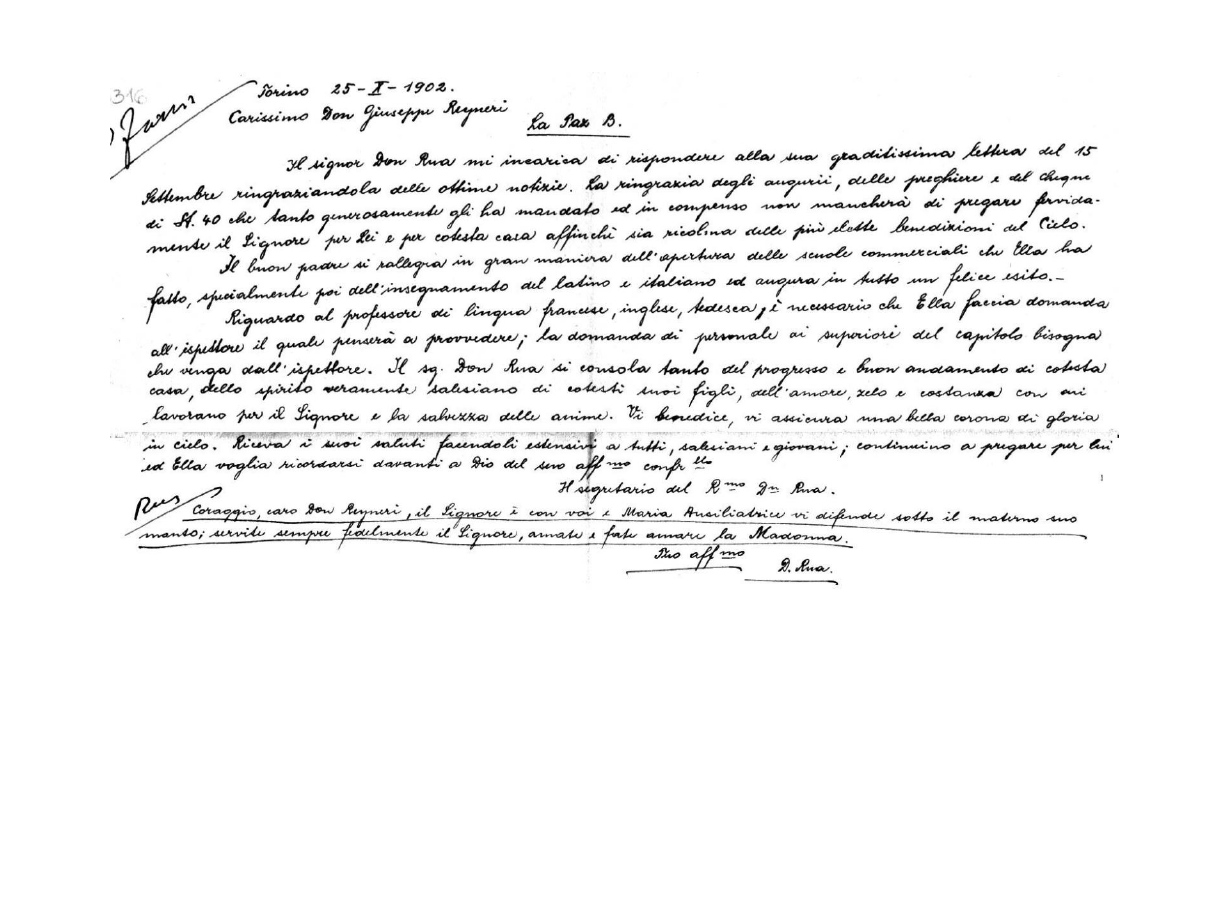 316
Torino 25-X-1902.
Carissimo Don Giuseppe Reyneri
La Paz B.
Il signor Don Rua mi incarica di rispondere alla sua graditissima lettera del 15
Settembre ringraziandola delle ottime notizie. La ringrazia degli augurii, delle preghiere e del cheque
di St. 40 che tanto generosamente gli ha mandato ed in compenso non mancherà di pregare fervida-
mente il Signore per Lei e per cotesta casa affinchè sia ricolma delle più elette benedizioni del Cielo.
Il buon padre si rallegra in gran maniera dell'apertura delle scuole commerciali che Ella ha
fatto, specialmente poi dell'insegnamento del latino e italiano ed augura in tutto un felice esito.-
Riguardo al professore di lingua francese, inglese, tedesca, è necessario che Ella faccia domanda
all'ispettore il quale penserà a provvedere; la domanda di personale ai superiori del capitolo bisogna
che venga dall'ispettore. Il sg. Don Rua si consola tanto del progresso e buon andamento di cotesta
casa, dello spirito veramente salesiano di cotesti suoi figli, dell'amore, zelo e costanza con cui
lavorano per il Signore e la salvezza delle anime. Vi benedice, vi assicura una bella corona di gloria
in cielo. Riceva i suoi saluti facendoli estensivi a tutti, salesiani e giovani; continuino a pregare per lui
ed Ella voglia ricordarsi davanti a Dio del suo aff mo confr llo
Il segretario del R mo Dn Rua.
Rua
Coraggio, caro Don Reyneri, il Signore è con voi e Maria Ausiliatrice vi difende sotto il materno suo
manto; servite sempre fedelmente il Signore, amate e fate amare la Madonna.
Tuo aff mo
D. Rua.